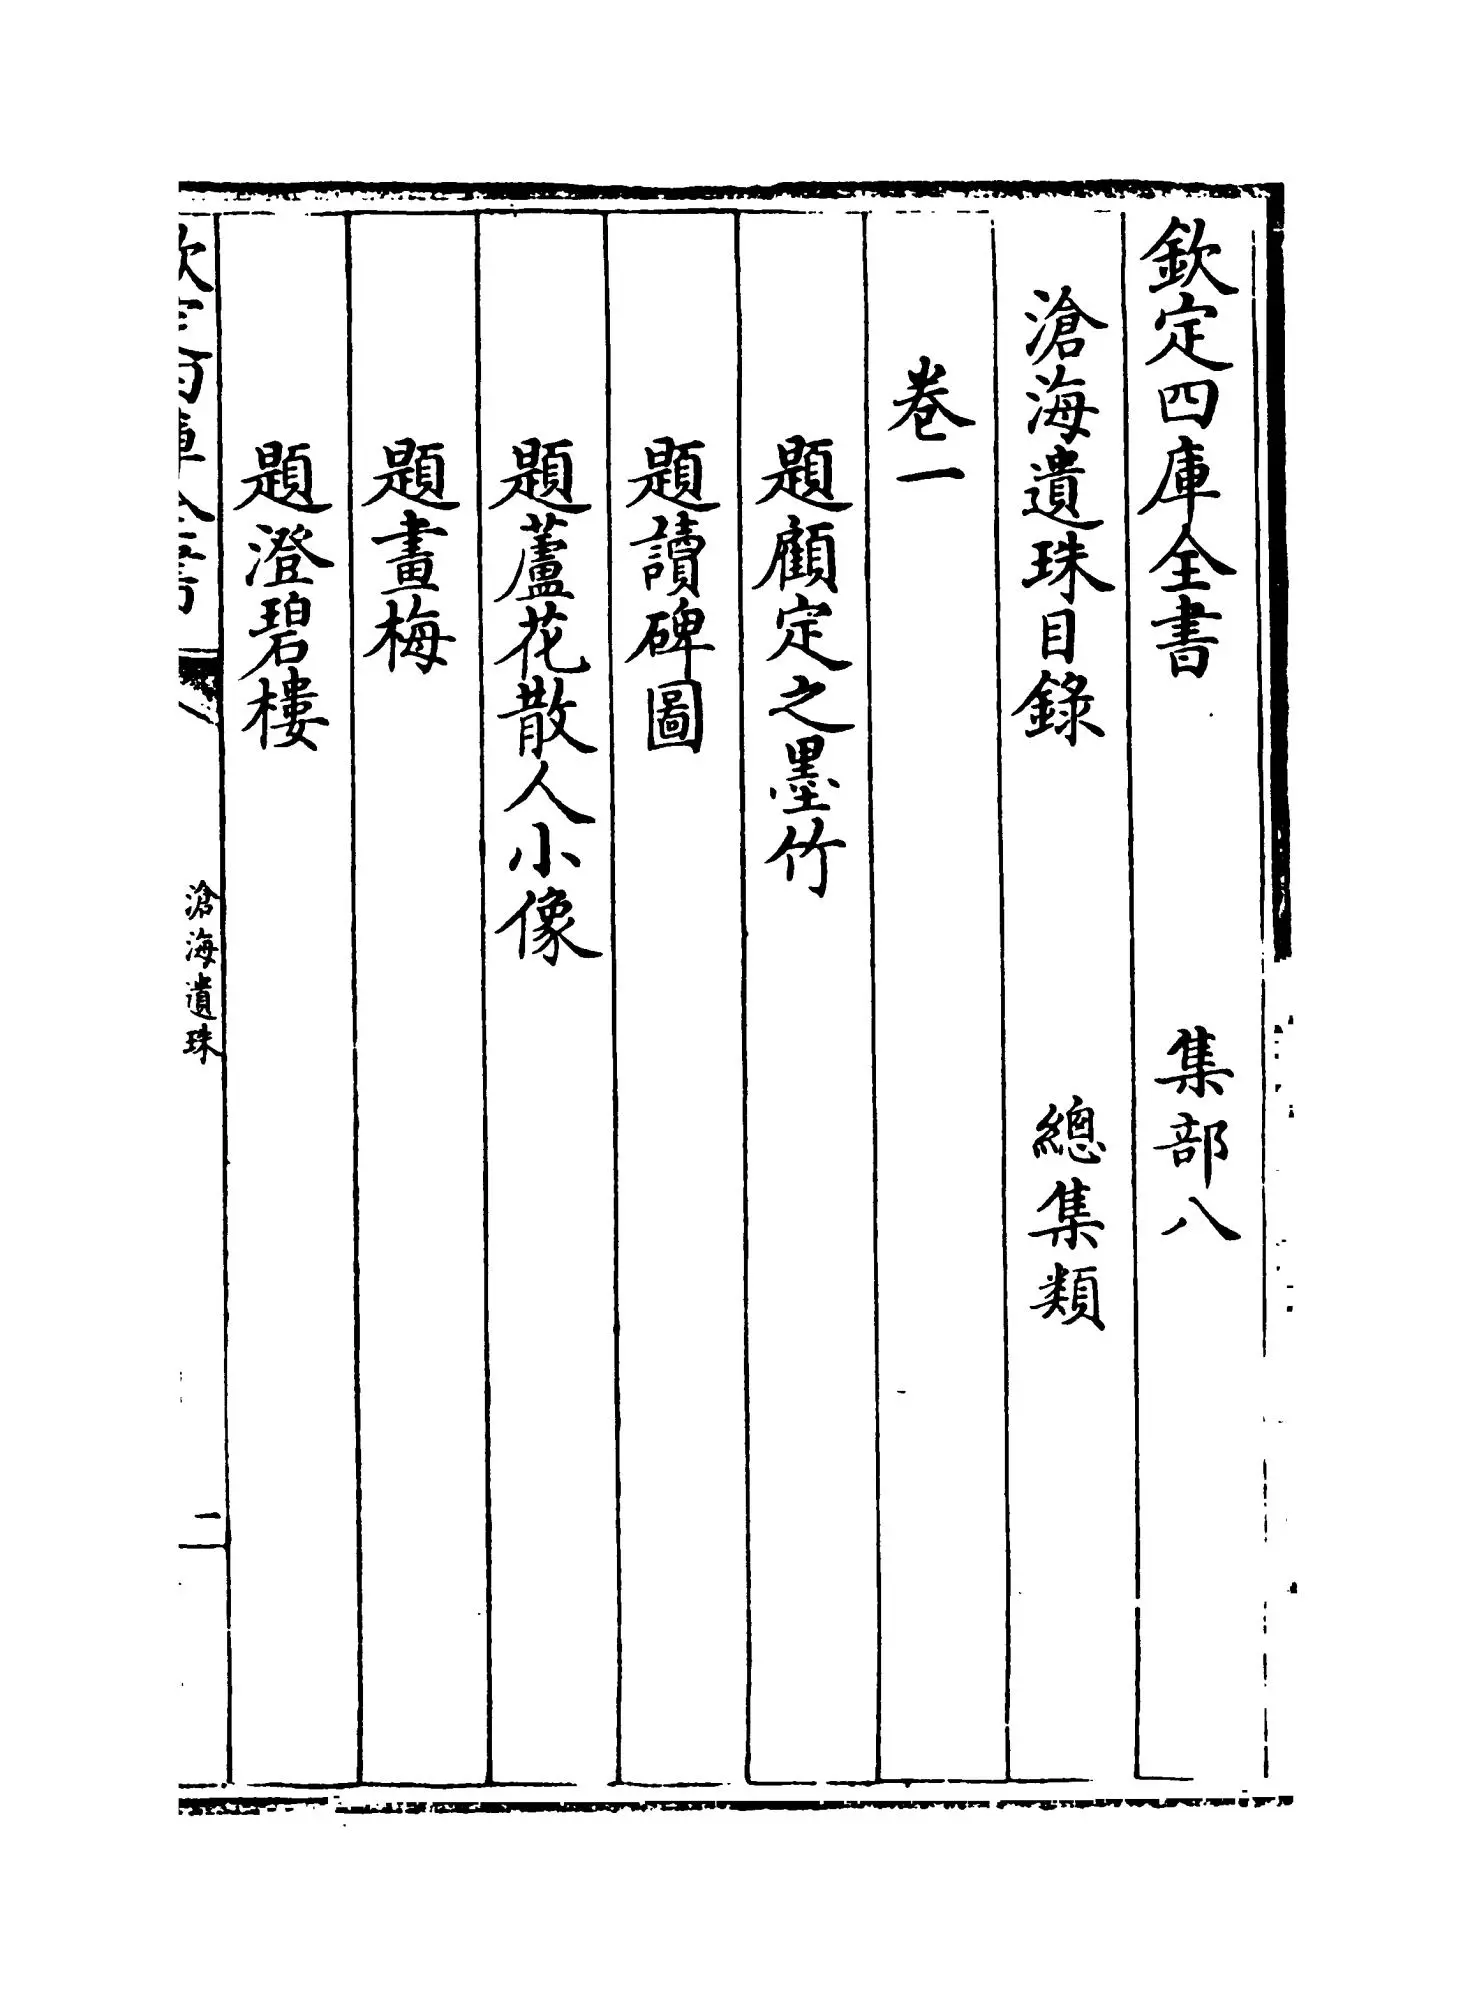 欽定四庫全書　集部八
滄海遺珠目錄　總集類
卷一
題顧定之墨竹
題讀碑圖
題蘆花散人小像
題畫梅
題澄碧樓
欽定四庫全書
滄海遺珠
二